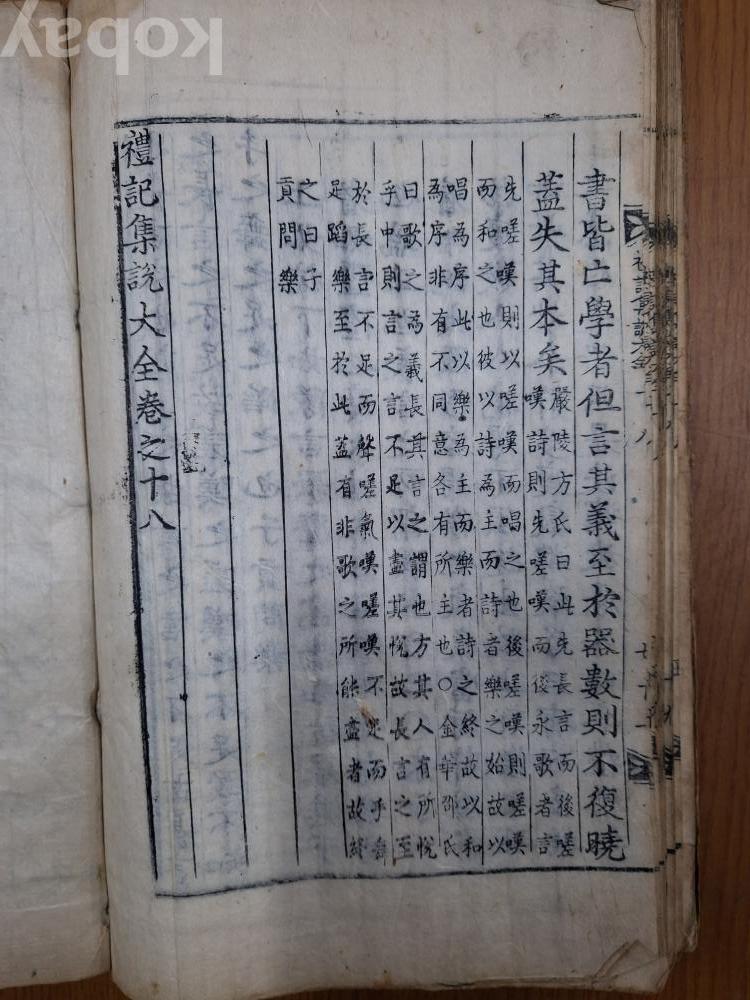 書皆亡學者但言其義至於器數則不復曉
蓋失其本矣
嚴陵方氏曰此先長言而後嗟
嘆詩則先嗟嘆而後永歌者言
先嗟嘆則以嗟嘆而唱之也後嗟嘆則嗟嘆
而和之也彼以詩為主而詩者樂之始故以
唱為序此以樂為主而樂者詩之終故以和
為序非有不同意各有所主也○金華邵氏
曰歌之為義長其言之謂也方其人有所悅
乎中則言之言不足以盡其悅故長言之至
於長言不足而聲嗟氣嘆嗟嘆不足而手舞
足蹈樂至於此蓋有非歌之所能盡者故終
之曰子
貢問樂
禮記集說大全卷之十八
kobay